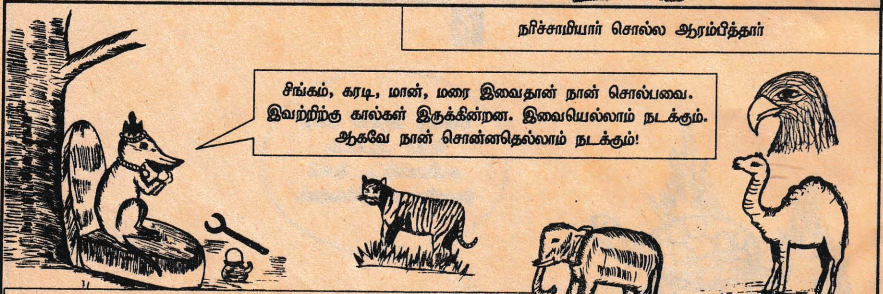 நரிச்சாமியார் சொல்ல ஆரம்பித்தார்
சிங்கம், கரடி, மான், மரை இவைதான் நான் சொல்பவை.
இவற்றிற்கு கால்கள் இருக்கின்றன. இவையெல்லாம் நடக்கும்.
ஆகவே நான் சொன்னதெல்லாம் நடக்கும்!